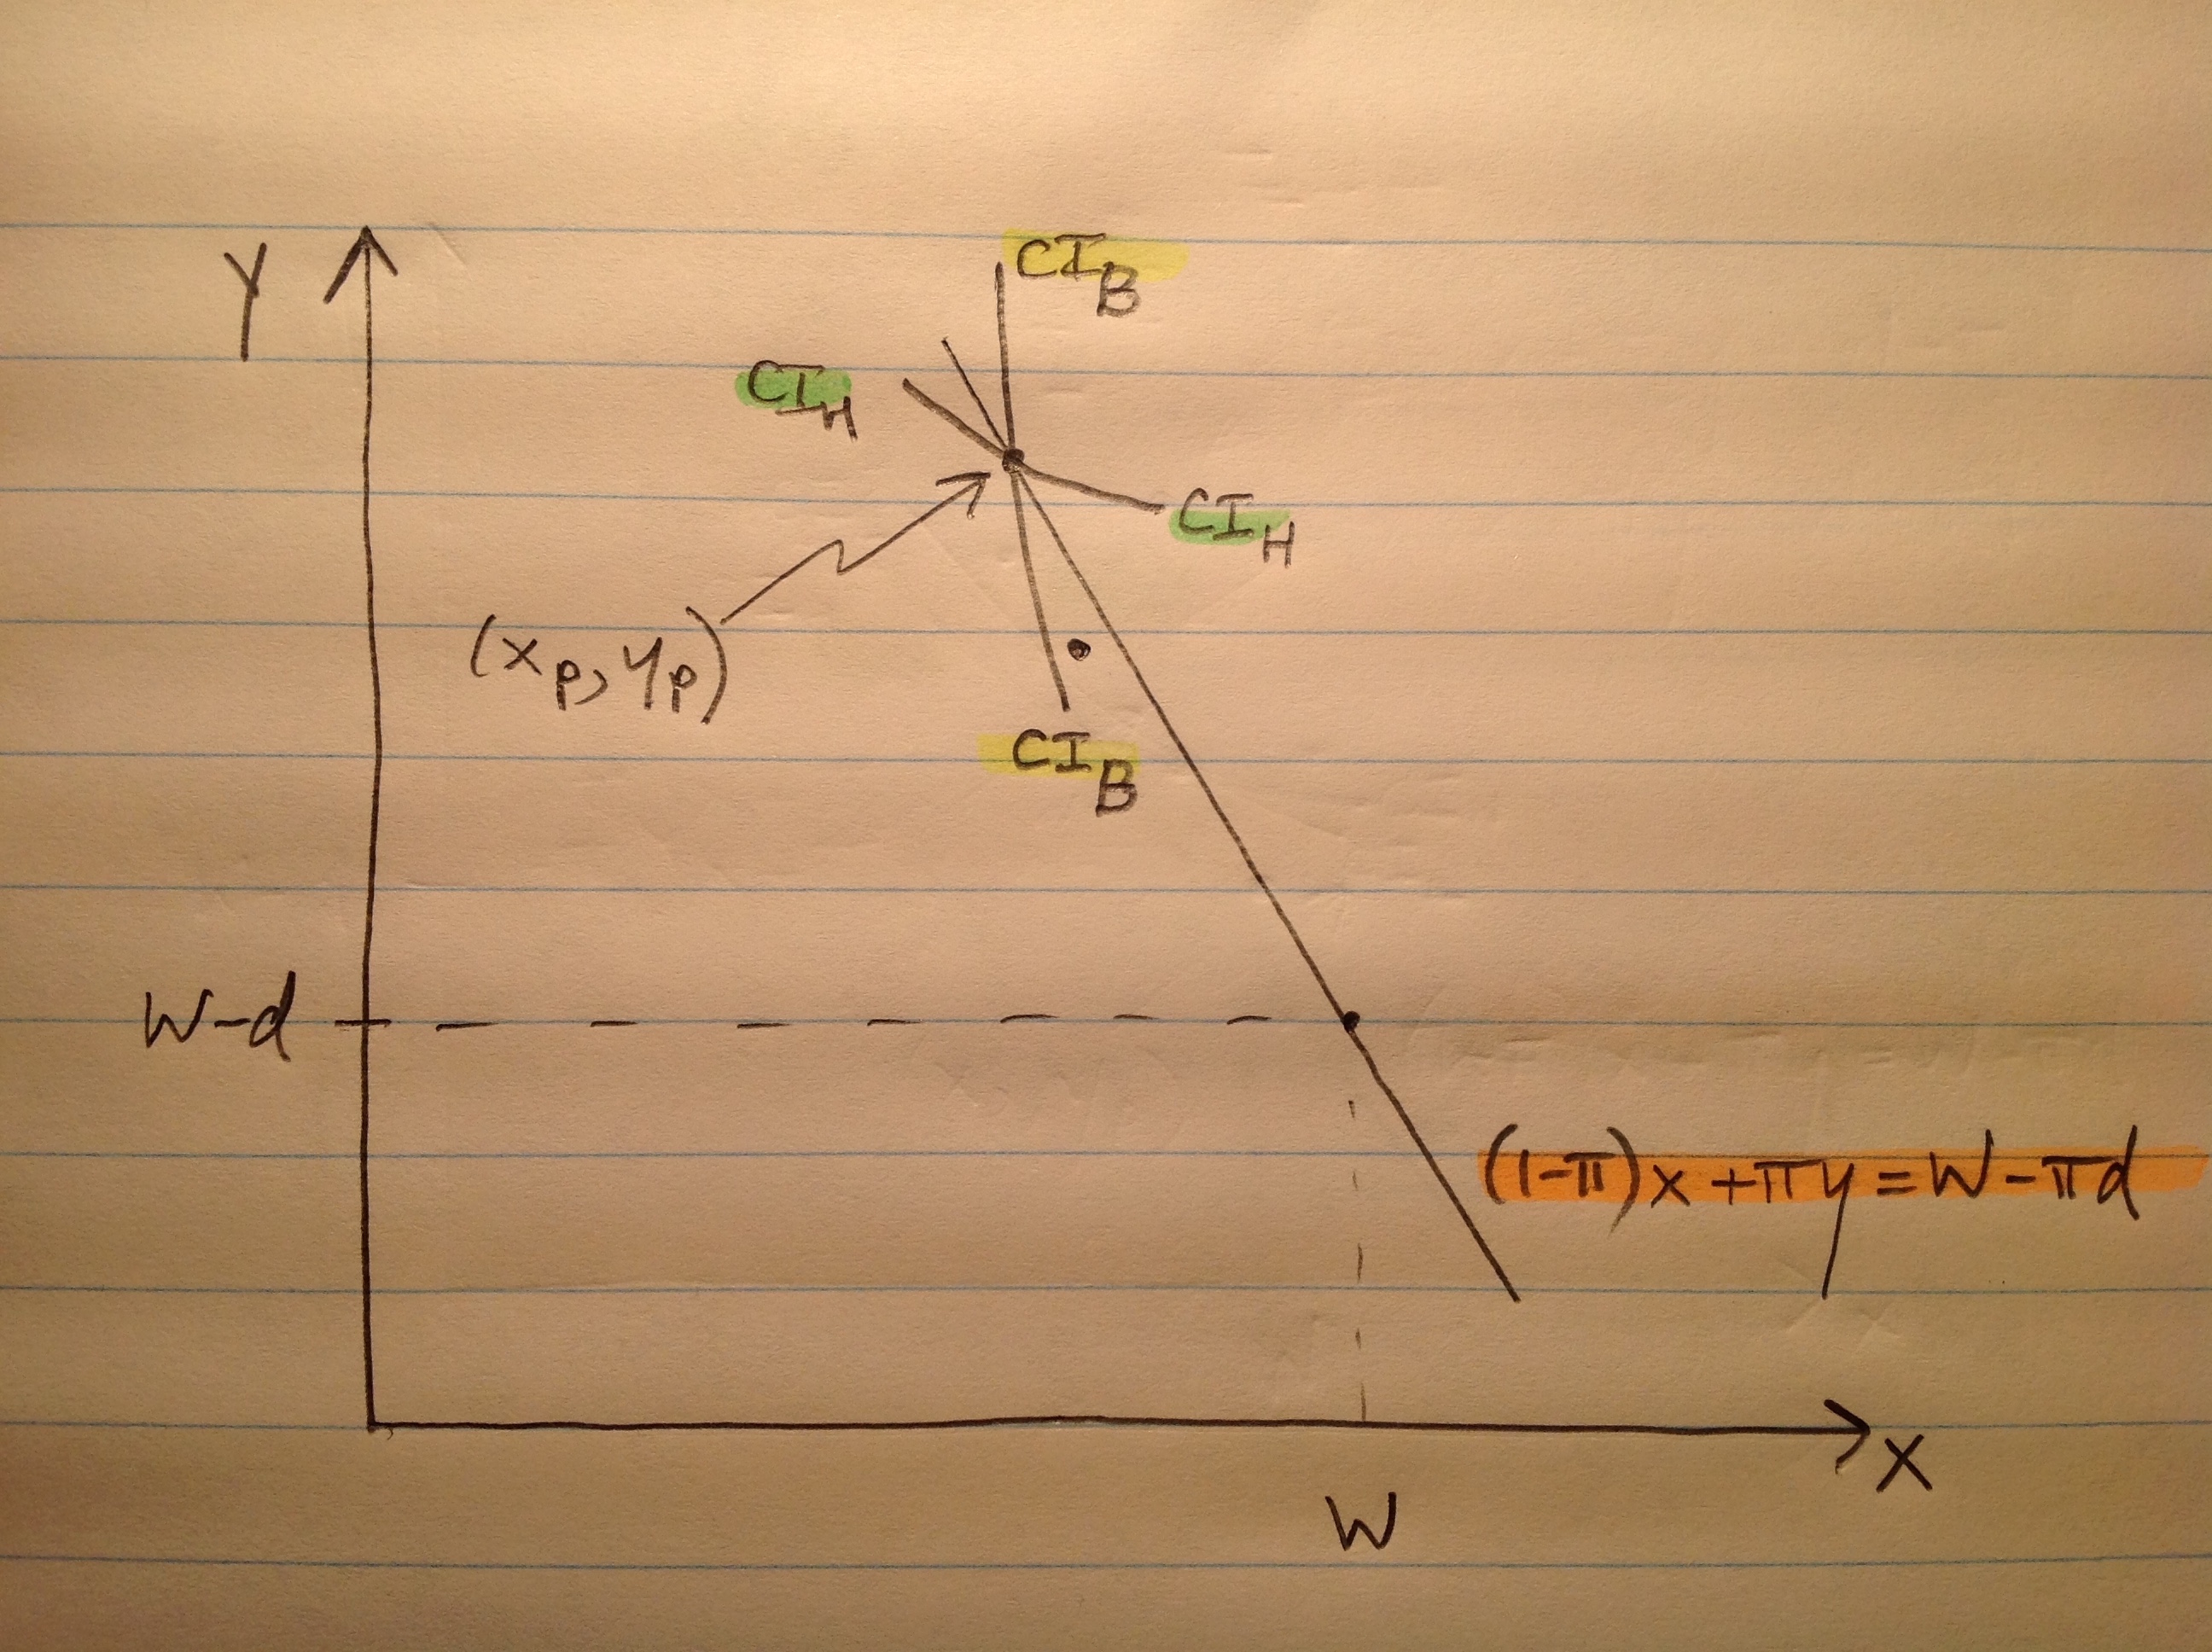 y
CI_B
CI_H
CI_H
(x_p, y_p)
CI_B
W-d
(1-π)x + πy = W - πd
x
W